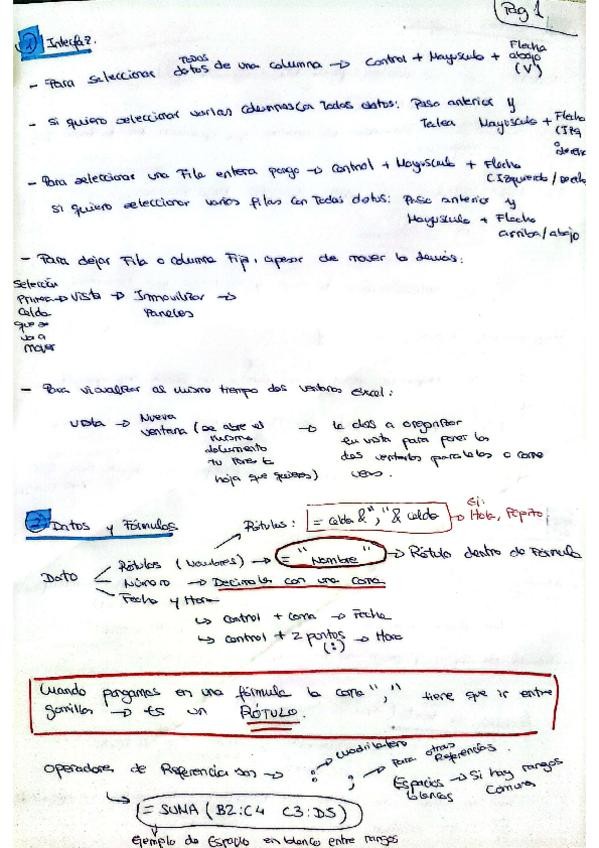 Pág 1
1 Interfaz.
- Para seleccionar TODOS datos de una columna → Control + Mayúscula + Flecha abajo (V)
- Si quiero seleccionar varias columnas con Todos datos: Paso anterior y
Teclea Mayúscula + Flecha (Izq o derecha
- Para seleccionar una Fila entera pongo → Control + Mayúscula + Flecha
(Izquierda / derecha
Si quiero seleccionar varias filas con Todos datos: Paso anterior y
Mayúscula + Flecha
arriba/abajo
- Para dejar Fila o columna Fija, apesar de mover lo demás:
Selección
Primera → Vista → Inmovilizar →
Celda Paneles
que se
va a
mover
- Para visualizar al mismo tiempo dos ventanas excel:
Vista → Nueva
ventana (se abre el → le das a organizar
mismo en vista para poner las
documento dos ventanas paralelas o como
tu pones la
hoja que quieres)
2 Datos y Fórmulas
Rótulos: = celda &","& celda → Ej: Hola, Pepito
Dato
Rótulos (Nombres) → = "Nombre" → Rótulo dentro de Fórmula
Número → Decimales con una coma
Fecha y Hora
↳ control + coma → Fecha
↳ control + 2 puntos (:) → Hora
Cuando pongamos en una fórmula la coma "," tiene que ir entre
→ Es un RÓTULO.
Operadores de Referencia son → : cuadrilatero ; Para otras Referencias.
Espacios blancos → Si hay rangos comunes
= SUMA (B2:C4 C3:D5)
Ejemplo de Espacio en blanco entre rangos